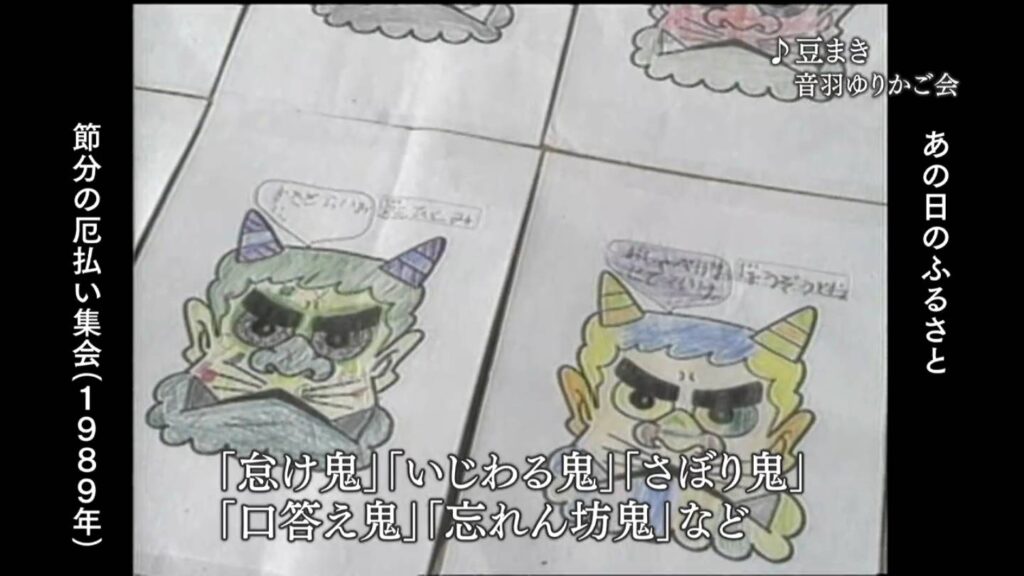 ♪豆まき
音羽ゆりかご会
あの日のふるさと
節分の厄払い集会(1989年)
「怠け鬼」「いじわる鬼」「さぼり鬼」
「口答え鬼」「忘れん坊鬼」など